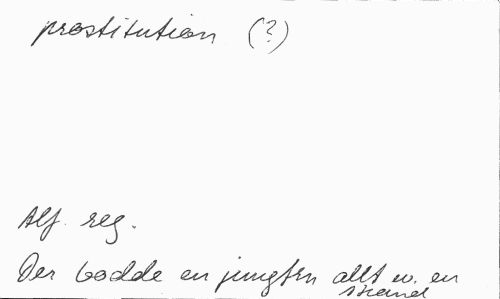 prostitution (?)
Alf. reg.
Der bodde en jungfru allt v. en
strand